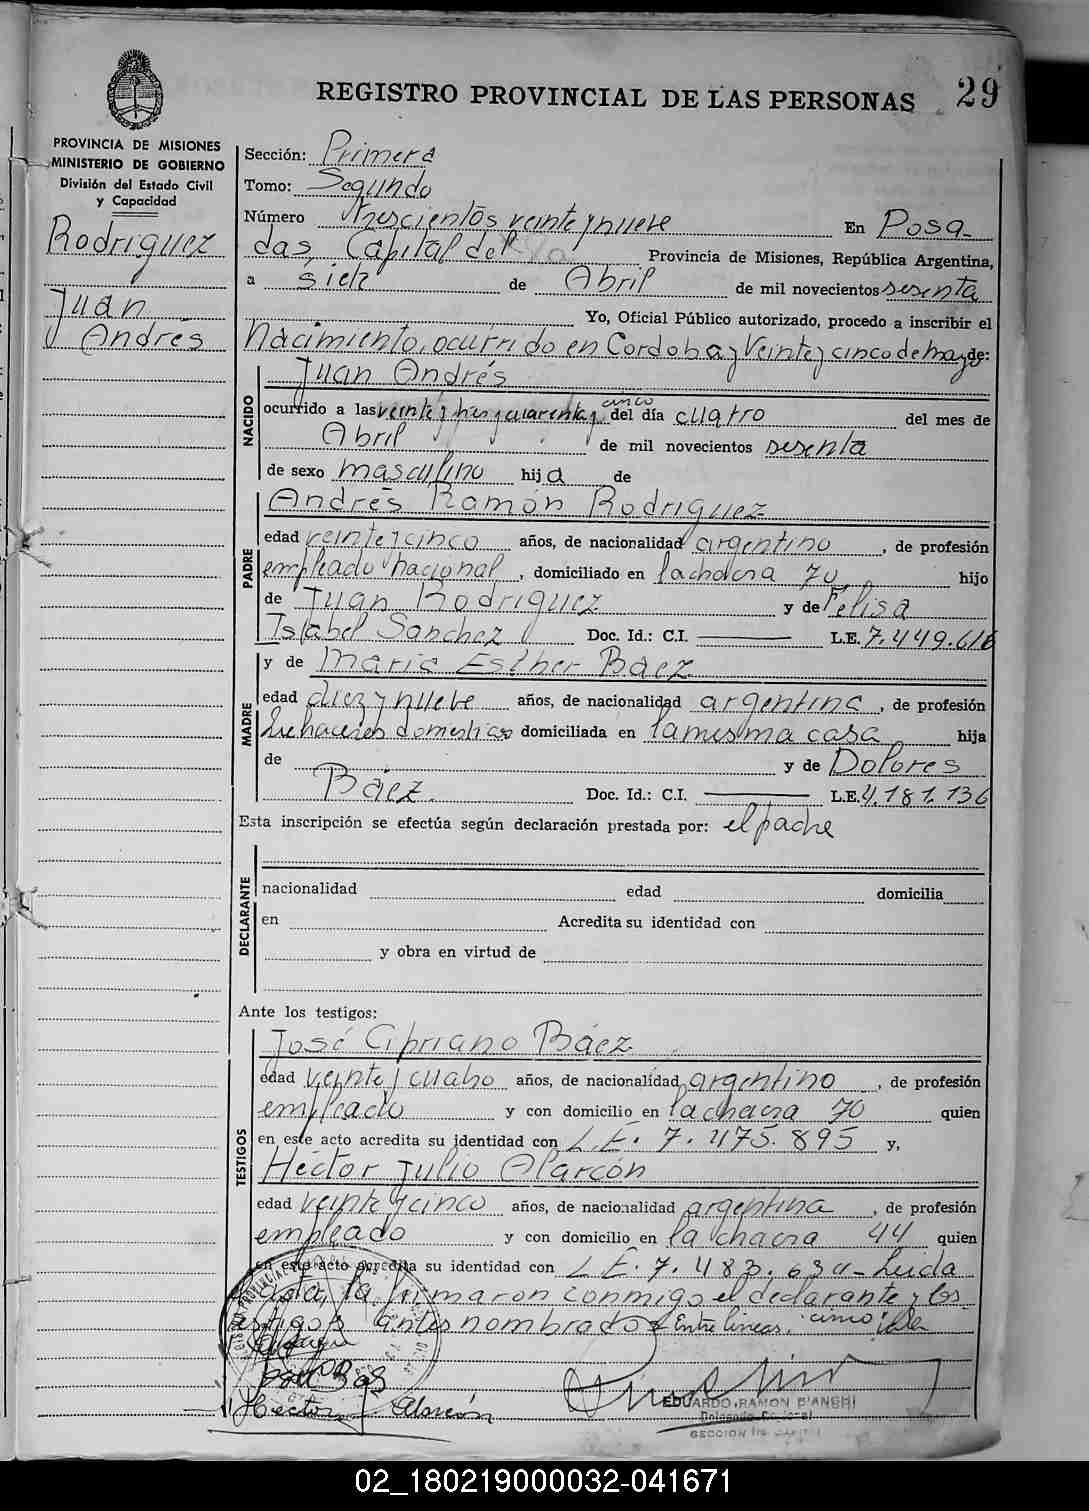 REGISTRO PROVINCIAL DE LAS PERSONAS 29
PROVINCIA DE MISIONES
MINISTERIO DE GOBIERNO
División del Estado Civil
y Capacidad
Rodriguez
Juan
Andrés
Sección: Primera
Tomo: Segundo
Número Trescientos veinte y nueve En Posa-
das, Capital de Provincia de Misiones, República Argentina,
a siete de Abril de mil novecientos sesenta
Yo, Oficial Público autorizado, procedo a inscribir el
Nacimiento, ocurrido en Cordoba y Veinte y cinco de mayo de:
NACIDO
Juan Andrés
cinco
ocurrido a las veinte y tres y cuarenta y del día cuatro del mes de
Abril de mil novecientos sesenta
de sexo masculino hija de
PADRE
Andrés Ramón Rodriguez
edad veinte y cinco años, de nacionalidad argentino, de profesión
empleado nacional, domiciliado en la chacra 70 hijo
de Juan Rodriguez y de Felisa
Isabel Sanchez Doc. Id.: C.I. L.E. 7.449.616
MADRE
y de Maria Esther Báez
edad diez y nueve años, de nacionalidad argentina, de profesión
quehaceres domesticos domiciliada en la misma casa hija
de y de Dolores
Báez. Doc. Id.: C.I. L.E. 4.181.136
Esta inscripción se efectúa según declaración prestada por: el padre
DECLARANTE
nacionalidad edad domicilia
en Acredita su identidad con
y obra en virtud de
Ante los testigos:
TESTIGOS
José Cipriano Báez
edad veinte y cuatro años, de nacionalidad argentino, de profesión
empleado y con domicilio en la chacra 70 quien
en este acto acredita su identidad con L.E. 7.475.895 y,
Héctor Julio Alarcón
edad veinte y cinco años, de nacionalidad argentina, de profesión
empleado y con domicilio en la chacra 44 quien
en este acto acredita su identidad con L.E. 7.483.634- Leida
el acta, la firmaron conmigo el declarante y los
testigos antes nombrados Entre lineas, "cinco" Vale
Hector J Alarcón
EDUARDO RAMON D'ANGERI
Delegado Seccional
SECCION 1ra CAPITAL
02_180219000032-041671